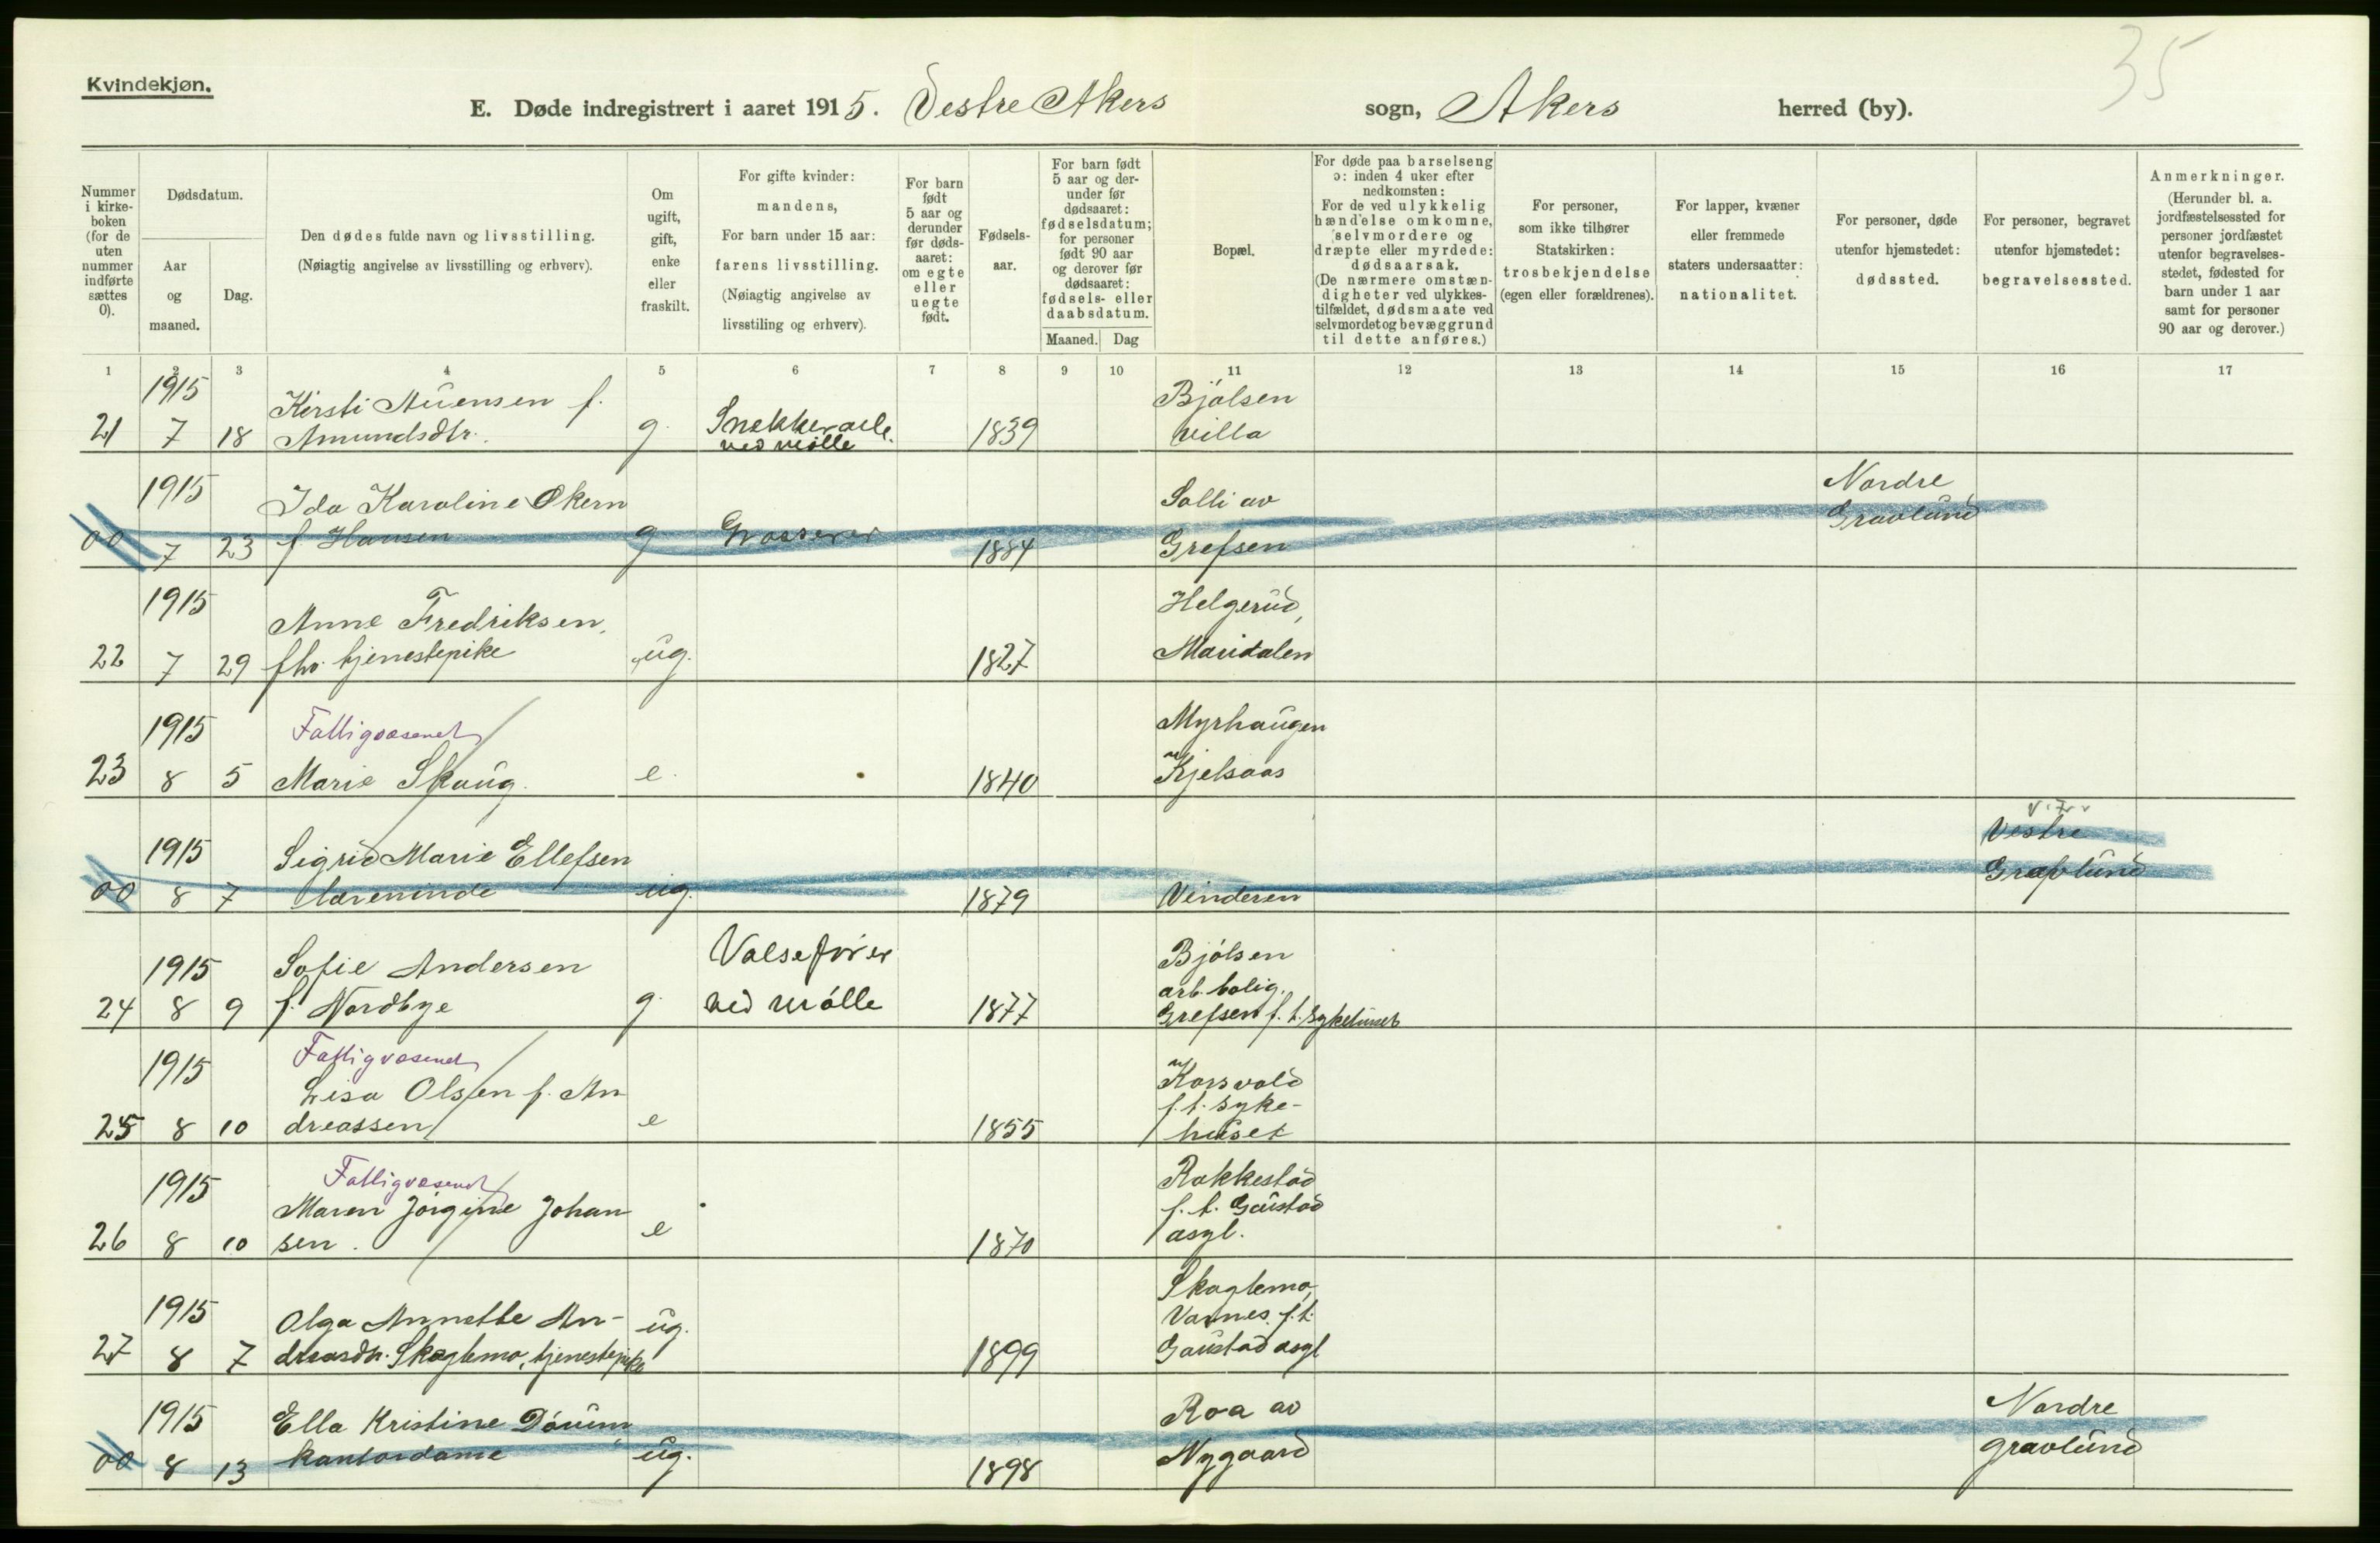 35
Kvindekjøn.
E. Døde indregistrert i aaret 1915. Vestre Akers sogn, Akers herred (by).
Nummer i kirke-boken (for de uten nummer indførte sættes 0).
Dødsdatum.
Aar og maaned.
Dag.
Den dødes fulde navn og livsstilling.
(Nøiagtig angivelse av livsstilling og erhverv).
Om ugift, gift, enke eller fraskilt.
For gifte kvinder: mandens,
For barn under 15 aar: farens livsstilling.
(Nøiagtig angivelse av livsstiling og erhverv).
For barn født 5 aar og derunder før døds-aaret: om egte eller uegte født.
Fødsels-aar.
For barn født 5 aar og der-under før dødsaaret: fødselsdatum; for personer født 90 aar og derover før dødsaaret: fødsels- eller daabsdatum.
Maaned. Dag
Bopæl.
For døde paa barselseng ɔ: inden 4 uker efter nedkomsten:
For de ved ulykkelig hændelse omkomne, selvmordere og dræpte eller myrdede: dødsaarsak.
(De nærmere omstæn-digheter ved ulykkes-tilfældet, dødsmaate ved selvmordet og bevæggrund til dette anføres.)
For personer, som ikke tilhører Statskirken: trosbekjendelse (egen eller forældrenes).
For lapper, kvæner eller fremmede staters undersaatter: nationalitet.
For personer, døde utenfor hjemstedet: dødssted.
For personer, begravet utenfor hjemstedet: begravelsessted.
Anmerkninger.
(Herunder bl. a. jordfæstelsessted for personer jordfæstet utenfor begravelses-stedet, fødested for barn under 1 aar samt for personer 90 aar og derover.)
1 2 3 4 5 6 7 8 9 10 11 12 13 14 15 16 17
1915 Kirsti Auensen f. Bjølsen
21 7 18 Amundsdtr. g. Snekkerarb. 1839 villa
ved mølle
1915 Ida Karoline Økern Solli av Nordre
00 7 23 f. Hansen g Grosserer 1884 Grefsen Gravlund
1915 Anne Fredriksen, Helgerud,
22 7 29 fhv. tjenestepike ug. 1827 Maridalen
1915 Fattigvæsenet Myrhaugen
23 8 5 Marie Skaug. e. 1840 Kjelsaas
1915 Sigrid Marie Ellefsen Vestre
00 8 7 lærerinde ug. 1879 Vinderen Gravlund
1915 Sofie Andersen Valsefører Bjølsen
arb. bolig.
24 8 9 f. Nordbye g. ved mølle 1877 Grefsen f. t. sykehuset
1915 Fattigvæsenet
Lisa Olsen f. An Korsvold
f. t. syke-
25 8 10 dreassen e 1855 huset
1915 Fattigvæsenet Rakkestad
Maren Jørgine Johan f. t. Gaustad
26 8 10 sen. e 1870 asyl.
1915 Skoglemo,
Olga Annette An- ug. f. t.
27 8 7 dreasdtr. Skoglemo, tjenestepike 1899 Gaustad asyl
1915 Ella Kristine Dørum Roa av Nordre
00 8 13 kontordame ug. 1898 Nygaard gravlund